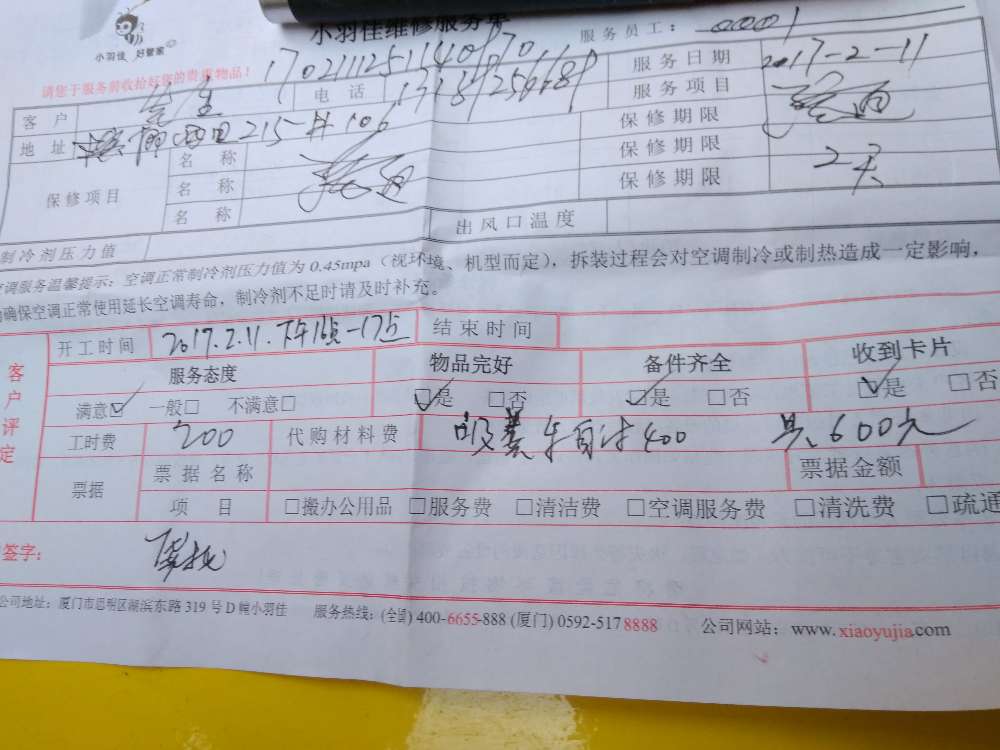 小羽佳维修服务单
小羽佳 好管家
服务员工： 00001
请您于服务前收拾好您的贵重物品！
客户 电话 服务日期 2017-2-11
地址 215-# 106 服务项目
保修项目 名称 保修期限
名称 保修期限
名称 保修期限 2天
制冷剂压力值 出风口温度
空调服务温馨提示：空调正常制冷剂压力值为 0.45mpa（视环境、机型而定），拆装过程会对空调制冷或制热造成一定影响，
确保空调正常使用延长空调寿命，制冷剂不足时请及时补充。
客户评定
开工时间 2017.2.11.下午16点-17点 结束时间
服务态度 物品完好 备件齐全 收到卡片
满意☑ 一般□ 不满意□ ☑是 □否 ☑是 □否 ☑是 □否
工时费 200 代购材料费 吸粪车自汁400 共600元
票据 票据名称 票据金额
项目 □搬办公用品 □服务费 □清洁费 □空调服务费 □清洗费 □疏通
签字：
公司地址：厦门市思明区湖滨东路 319 号 D 幢小羽佳 服务热线：(全国) 400-6655-888 (厦门) 0592-5178888 公司网站：www.xiaoyujia.com